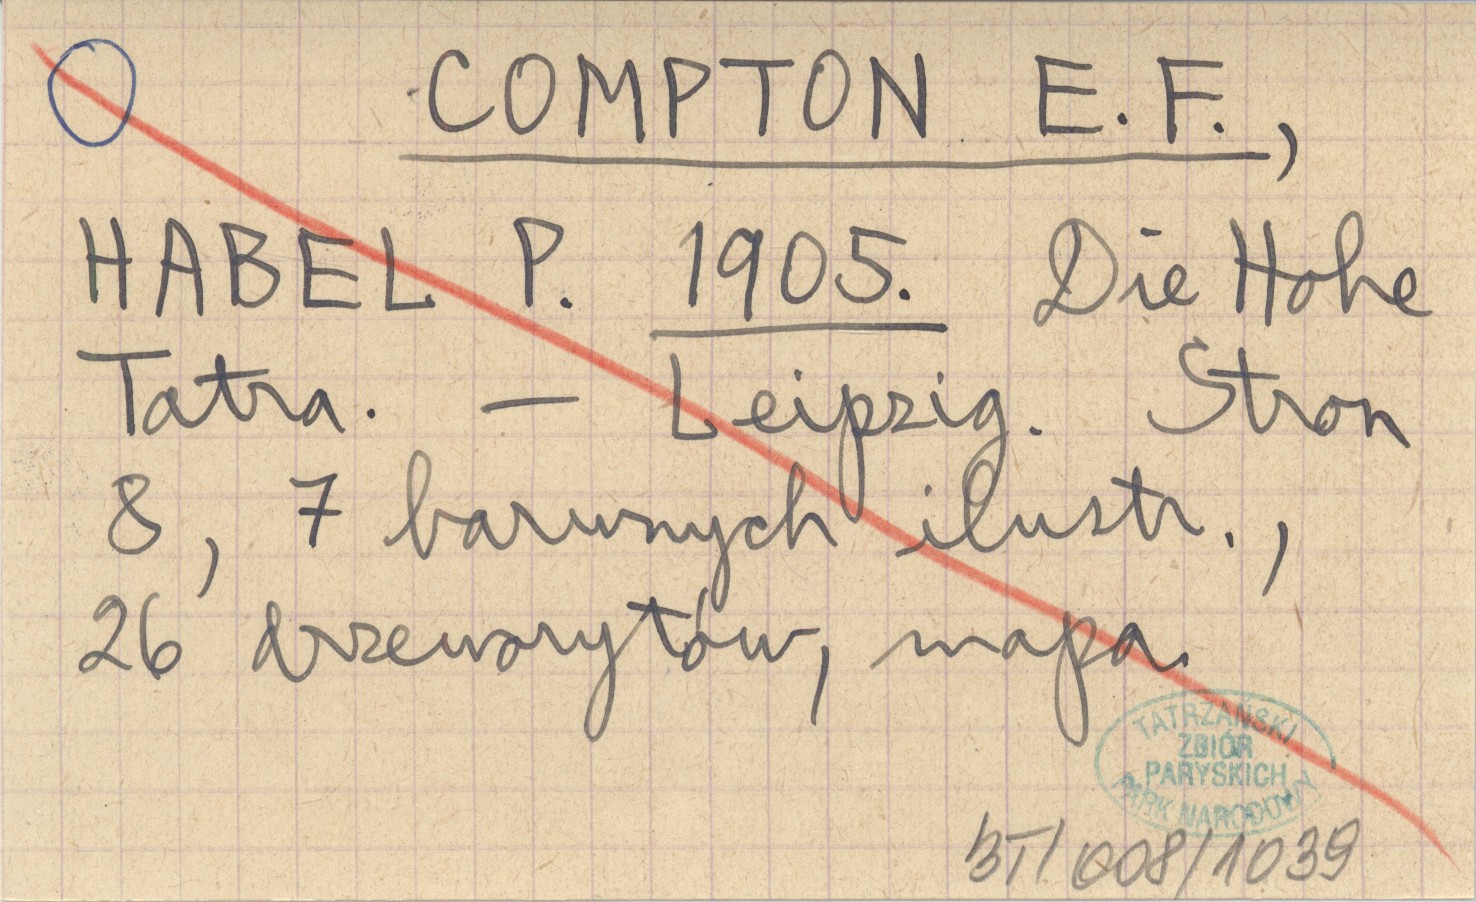 COMPTON E.F.,
HABEL P. 1905. Die Hohe
Tatra. — Leipzig. Stron
8, 7 barwnych ilustr.,
26 drzeworytów, mapa.
TATRZAŃSKI
ZBIÓR
PARYSKICH
PARK NARODOWY
BT/008/1039